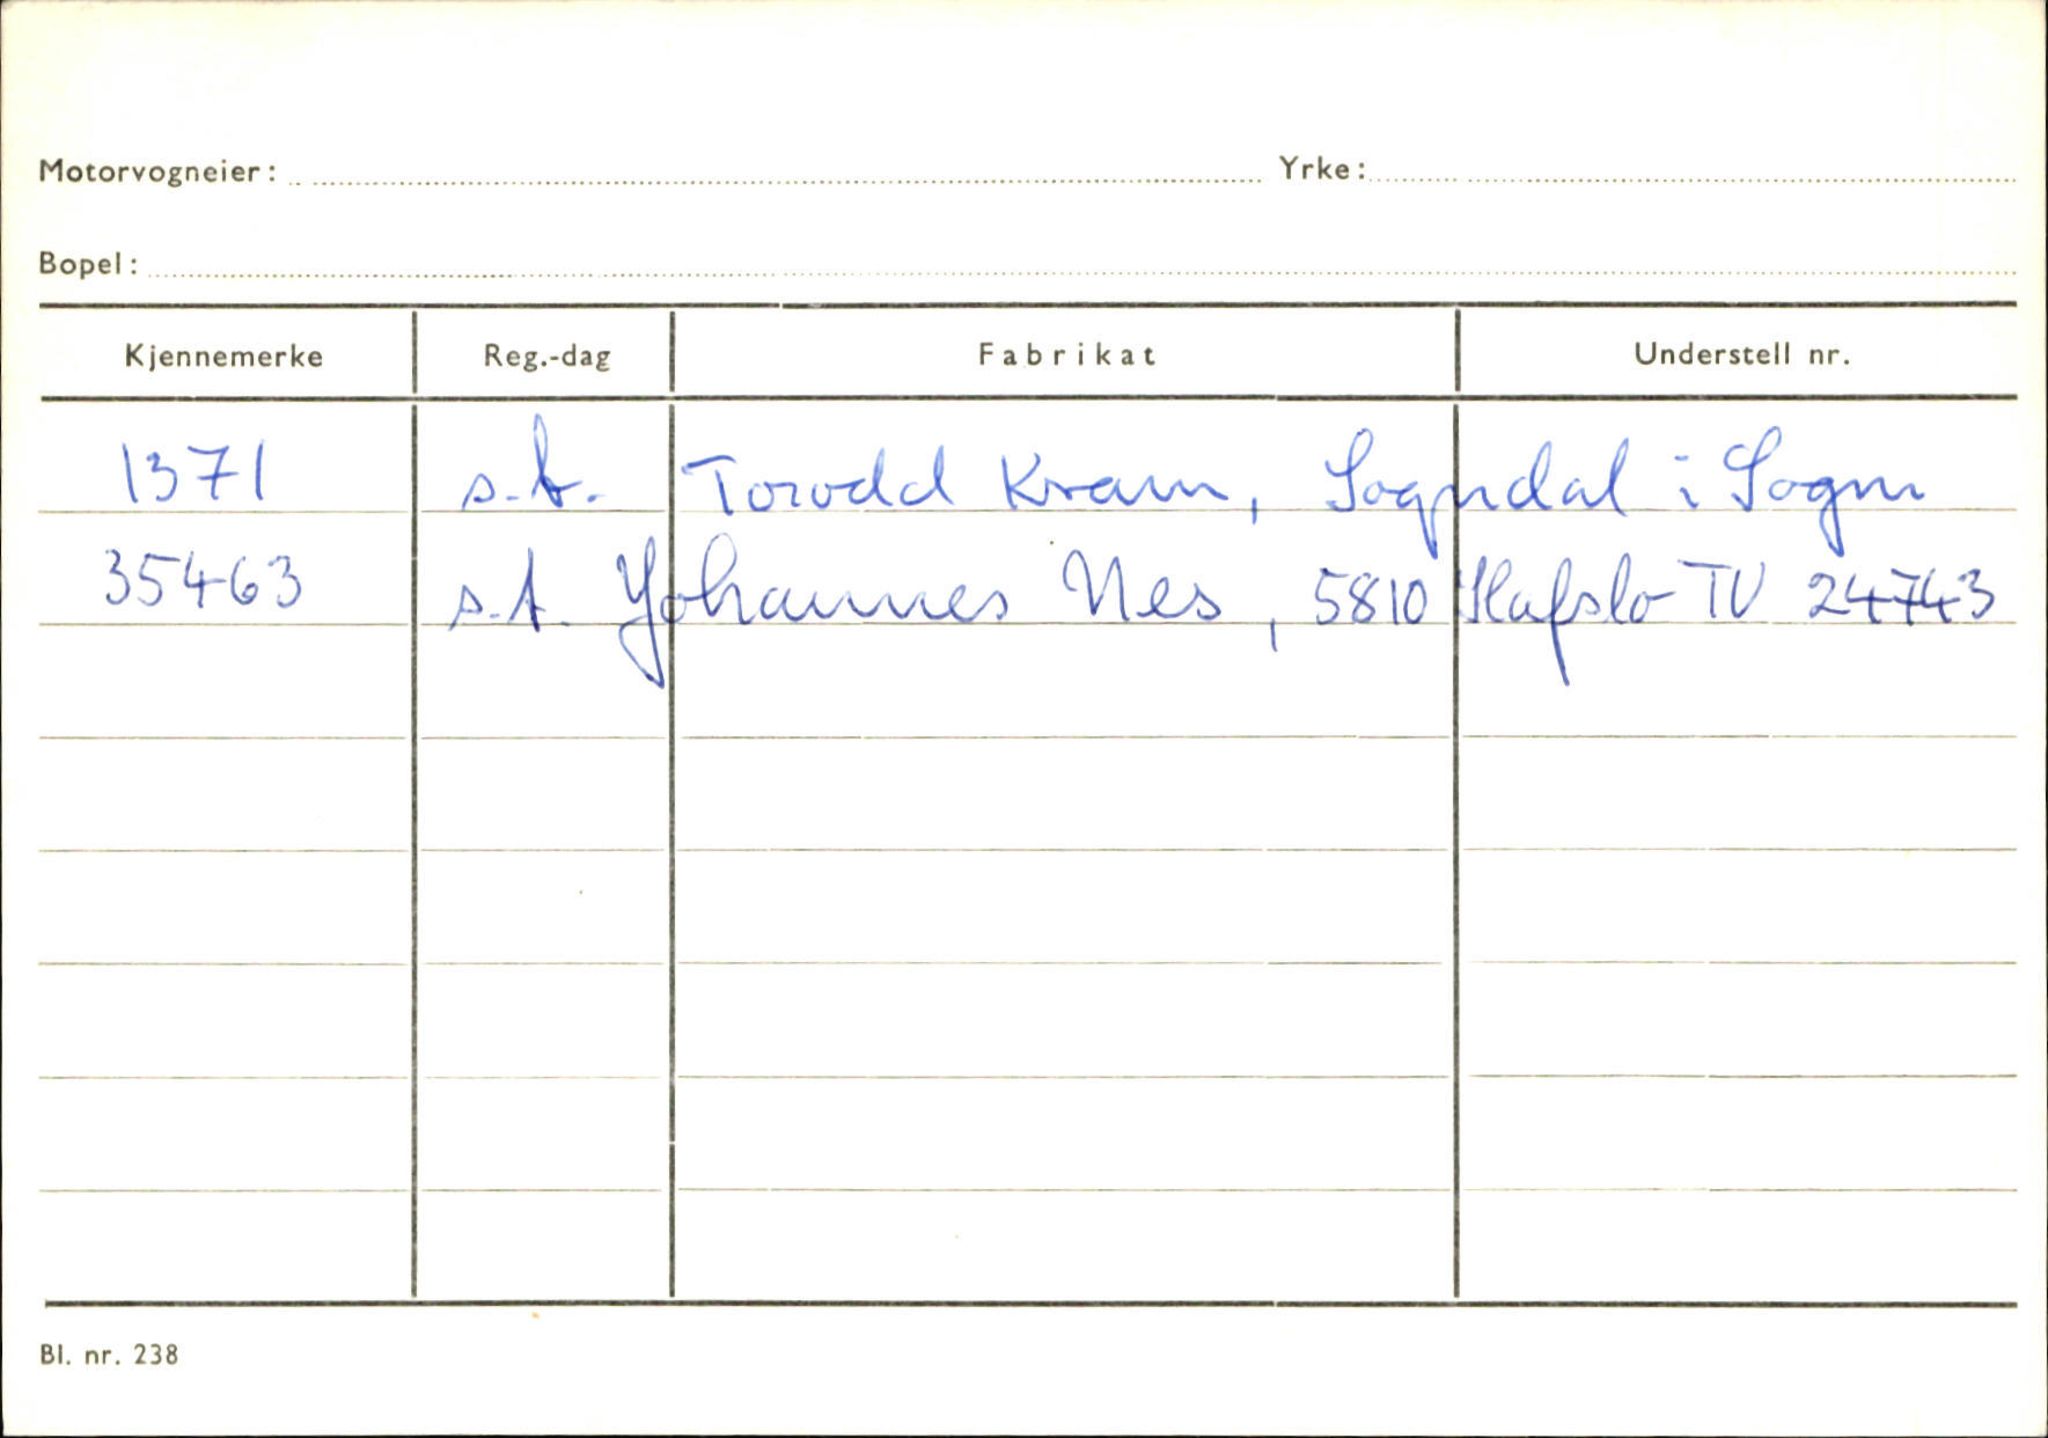 Motorvogneier: Yrke:
Bopel:
Kjennemerke Reg.-dag Fabrikat Understell nr.
1371 s.t. Torodd Kvam, Sogndal i Sogn
35463 s.t. Johannes Nes, 5810 Hafslo TV 24743
Bl. nr. 238